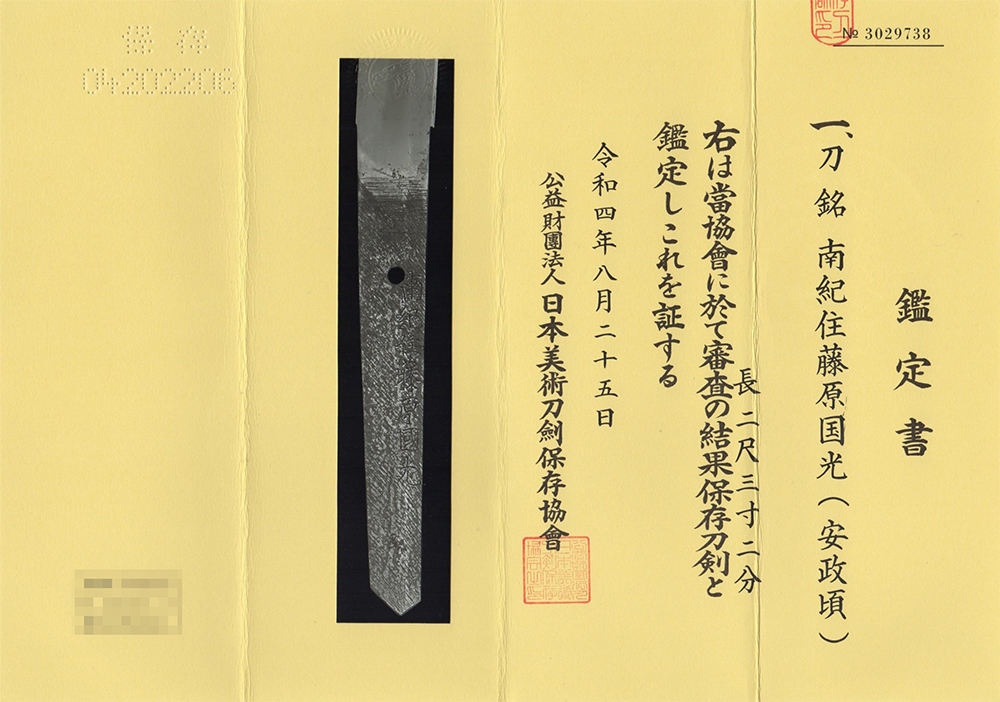 № 3029738
鑑定書
一、刀 銘 南紀住藤原国光(安政頃)
長 二尺三寸二分
右は當協會に於て審査の結果保存刀剣と
鑑定しこれを証する
令和四年八月二十五日
公益財團法人 日本美術刀劍保存協會
保存
04202206